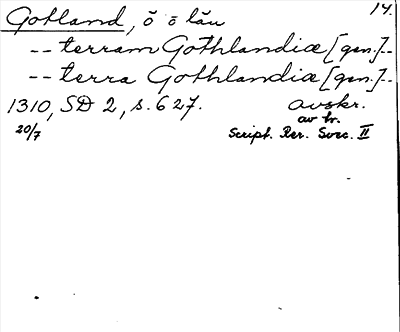 Gotland, ŏ ō lău 14.
-- terram Gothlandiæ [gen.]--
-- terra Gothlandiæ [gen.]--
1310, SD 2, s. 627. avskr.
20/7 av tr.
Script. Rer. Svec. II